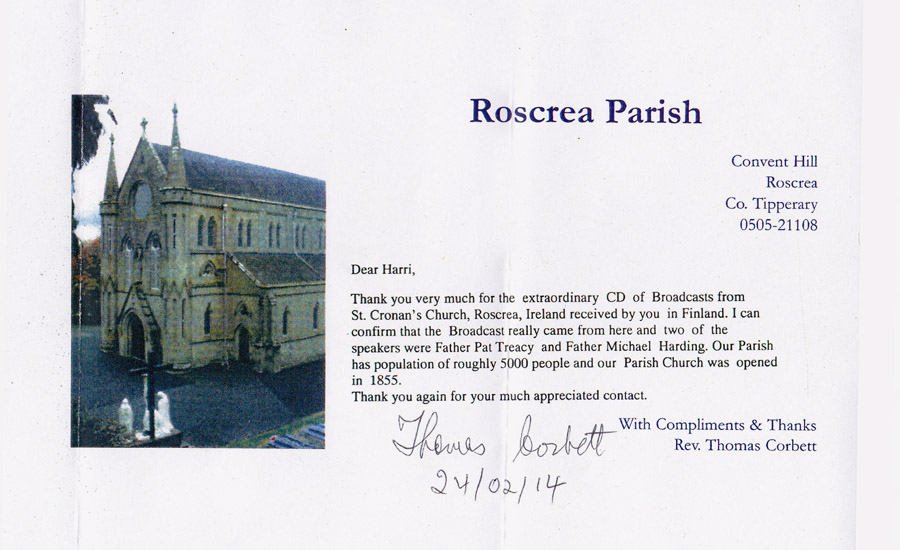 Roscrea Parish
Convent Hill
Roscrea
Co. Tipperary
0505-21108
Dear Harri,
Thank you very much for the extraordinary CD of Broadcasts from
St. Cronan's Church, Roscrea, Ireland received by you in Finland. I can
confirm that the Broadcast really came from here and two of the
speakers were Father Pat Treacy and Father Michael Harding. Our Parish
has population of roughly 5000 people and our Parish Church was opened
in 1855.
Thank you again for your much appreciated contact.
With Compliments & Thanks
Rev. Thomas Corbett
Thomas Corbett
24/02/14